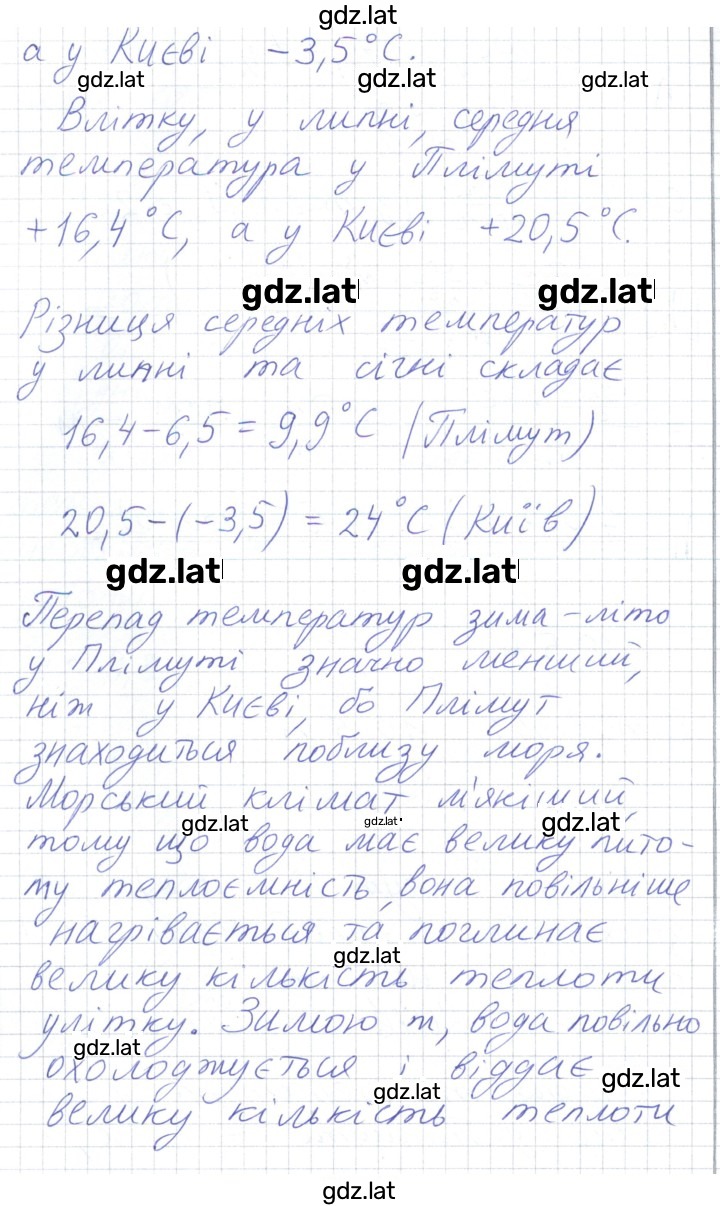 gdz.lat
а у Києві −3,5°C.
gdz.lat gdz.lat gdz.lat
Влітку, у липні, середня
температура у Плімуті
+16,4°C, а у Києві +20,5°C.
gdz.lat gdz.lat
Різниця середніх температур
у липні та січні складає
16,4−6,5=9,9°C (Плімут)
20,5−(−3,5)=24°C (Київ)
gdz.lat gdz.lat
Перепад температур зима-літо
у Плімуті значно менший,
ніж у Києві, бо Плімут
знаходиться поблизу моря.
Морський клімат м'якіший,
gdz.lat gdz.lat gdz.lat
тому що вода має велику пито-
му теплоємність, вона повільніше
нагрівається та поглинає
gdz.lat
велику кількість теплоти
улітку. Зимою ж, вода повільно
gdz.lat
охолоджується і віддає
gdz.lat gdz.lat
велику кількість теплоти
gdz.lat